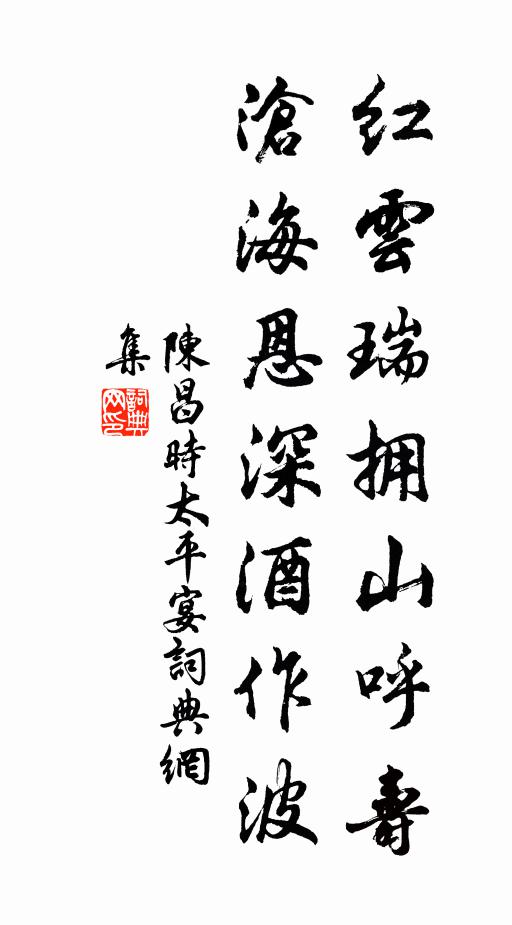 红雲瑞拥山呼壽
滄海恩深酒作波
陳昌時太平宴詞典網
集
詞典
网印